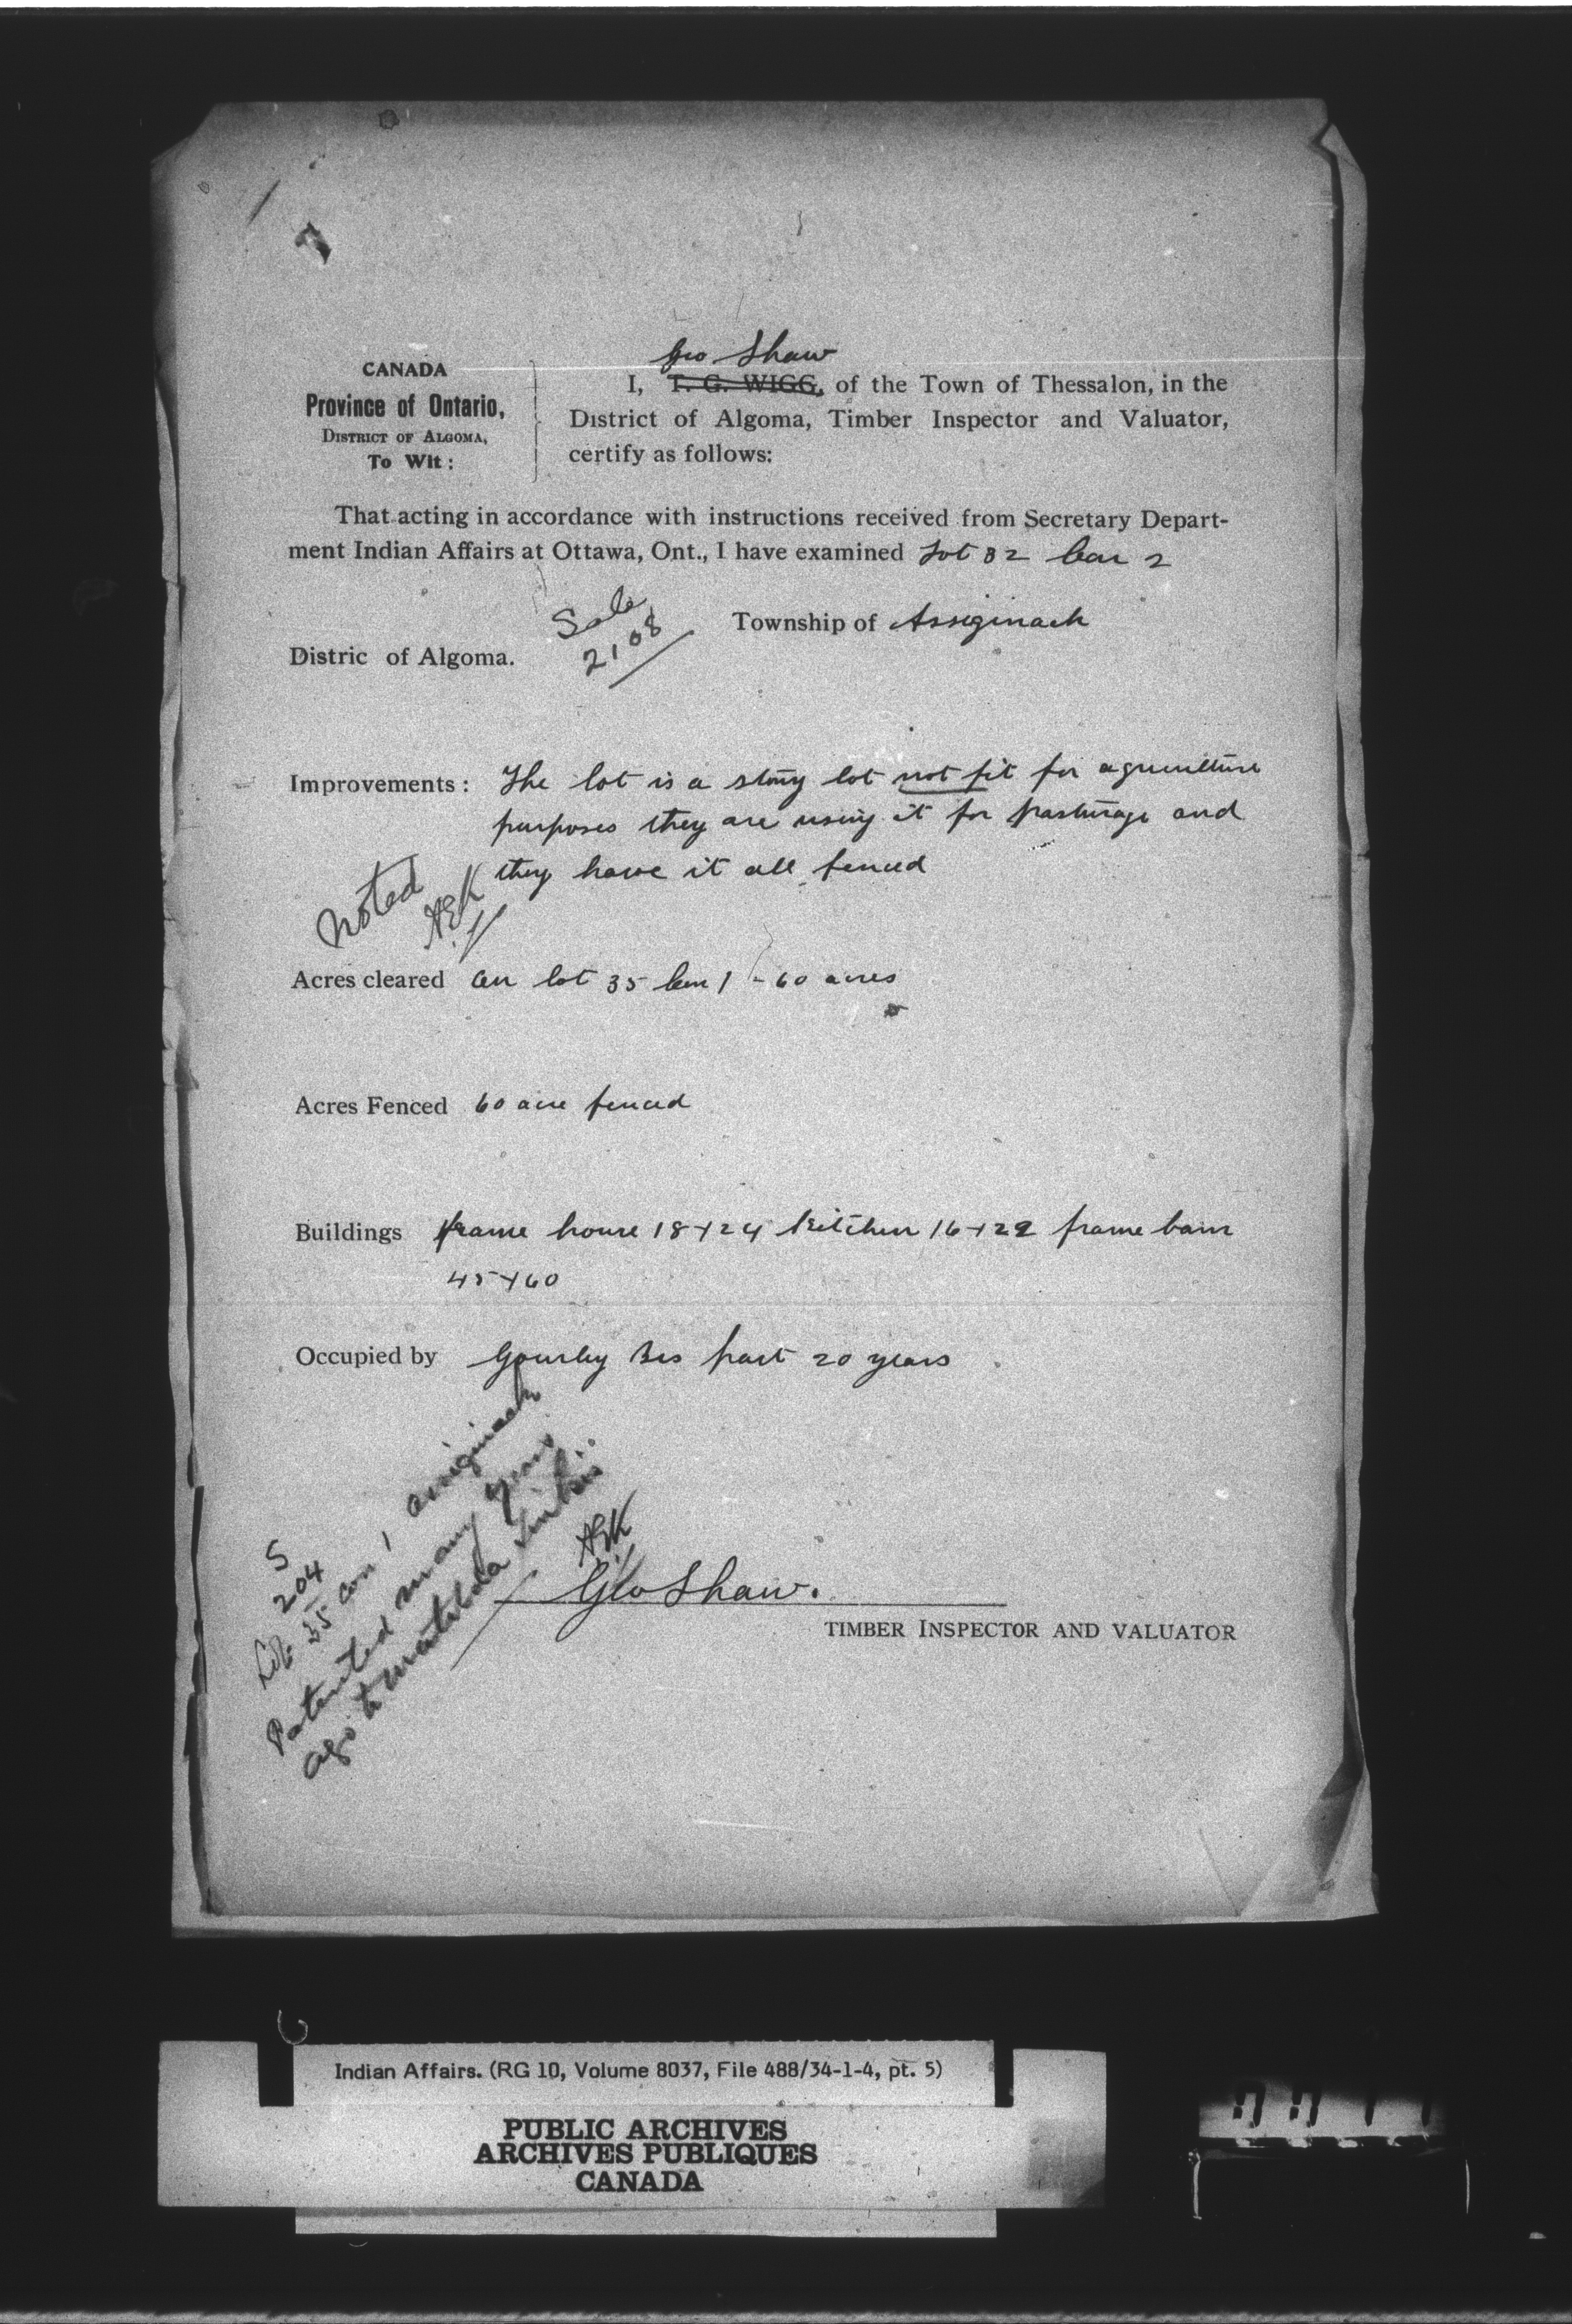 Geo Shaw
CANADA
Province of Ontario,
DISTRICT OF ALGOMA,
To Wit:
I, T. G. WIGG, of the Town of Thessalon, in the
District of Algoma, Timber Inspector and Valuator,
certify as follows:
That acting in accordance with instructions received from Secretary Depart-
ment Indian Affairs at Ottawa, Ont., I have examined Lot 32 Con 2
Sale
2108
Township of Assiginack
Distric of Algoma.
Improvements: The lot is a stony lot not fit for agriculture
purposes they are using it for pasturage and
they have it all fenced
Noted
Acres cleared on lot 35 Con 1 - 60 acres
Acres Fenced 60 acre fenced
Buildings frame house 18x24 Kitchen 16x22 frame barn
45x60
Occupied by Gourley Bros past 20 years
S
204
Lot 35 con 1 assiginack
Patented many years
ago to Matilda
Geo Shaw.
TIMBER INSPECTOR AND VALUATOR
Indian Affairs. (RG 10, Volume 8037, File 488/34-1-4, pt. 5)
PUBLIC ARCHIVES
ARCHIVES PUBLIQUES
CANADA